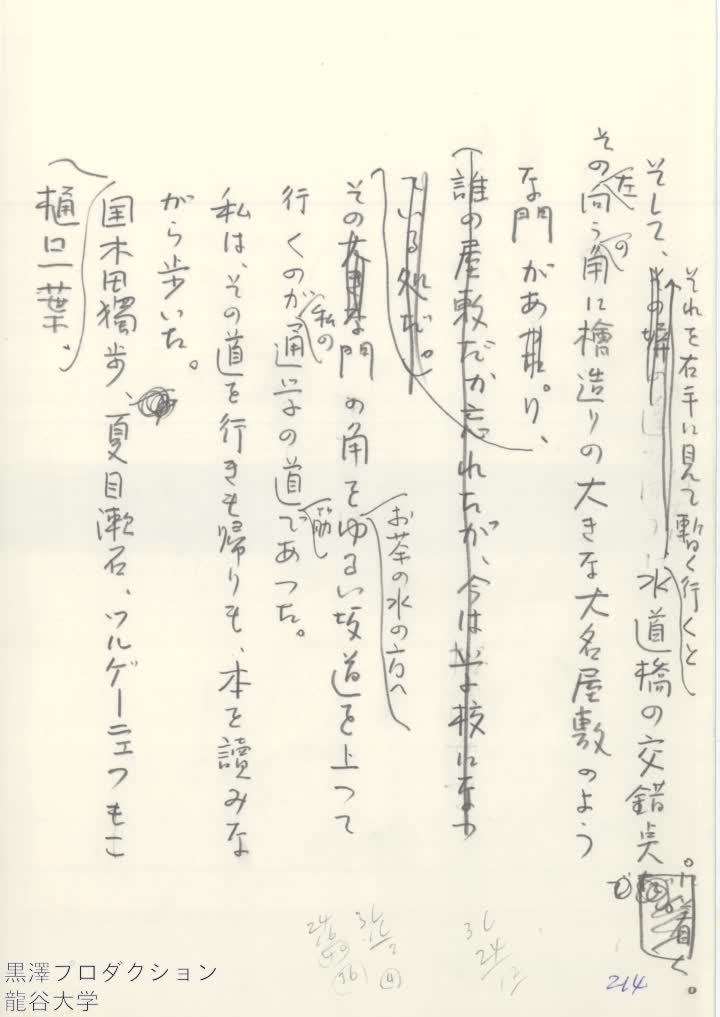 そして、それを右手に見て暫く行くと水道橋の交錯点
その向う左の角に檜造りの大きな大名屋敷のよう
な門があり、
(誰の屋敷だか忘れたが、今は学校になつ
ている処だ。
その門の角をお茶の水の方へゆるい坂道を上つて
行くのが私の通学の道筋であつた。
私は、その道を行きも帰りも、本を読みな
がら歩いた。
国木田獨歩、夏目漱石、ツルゲーニェフもこ
樋口一葉、
36
24
12
214
黒澤プロダクション
龍谷大学